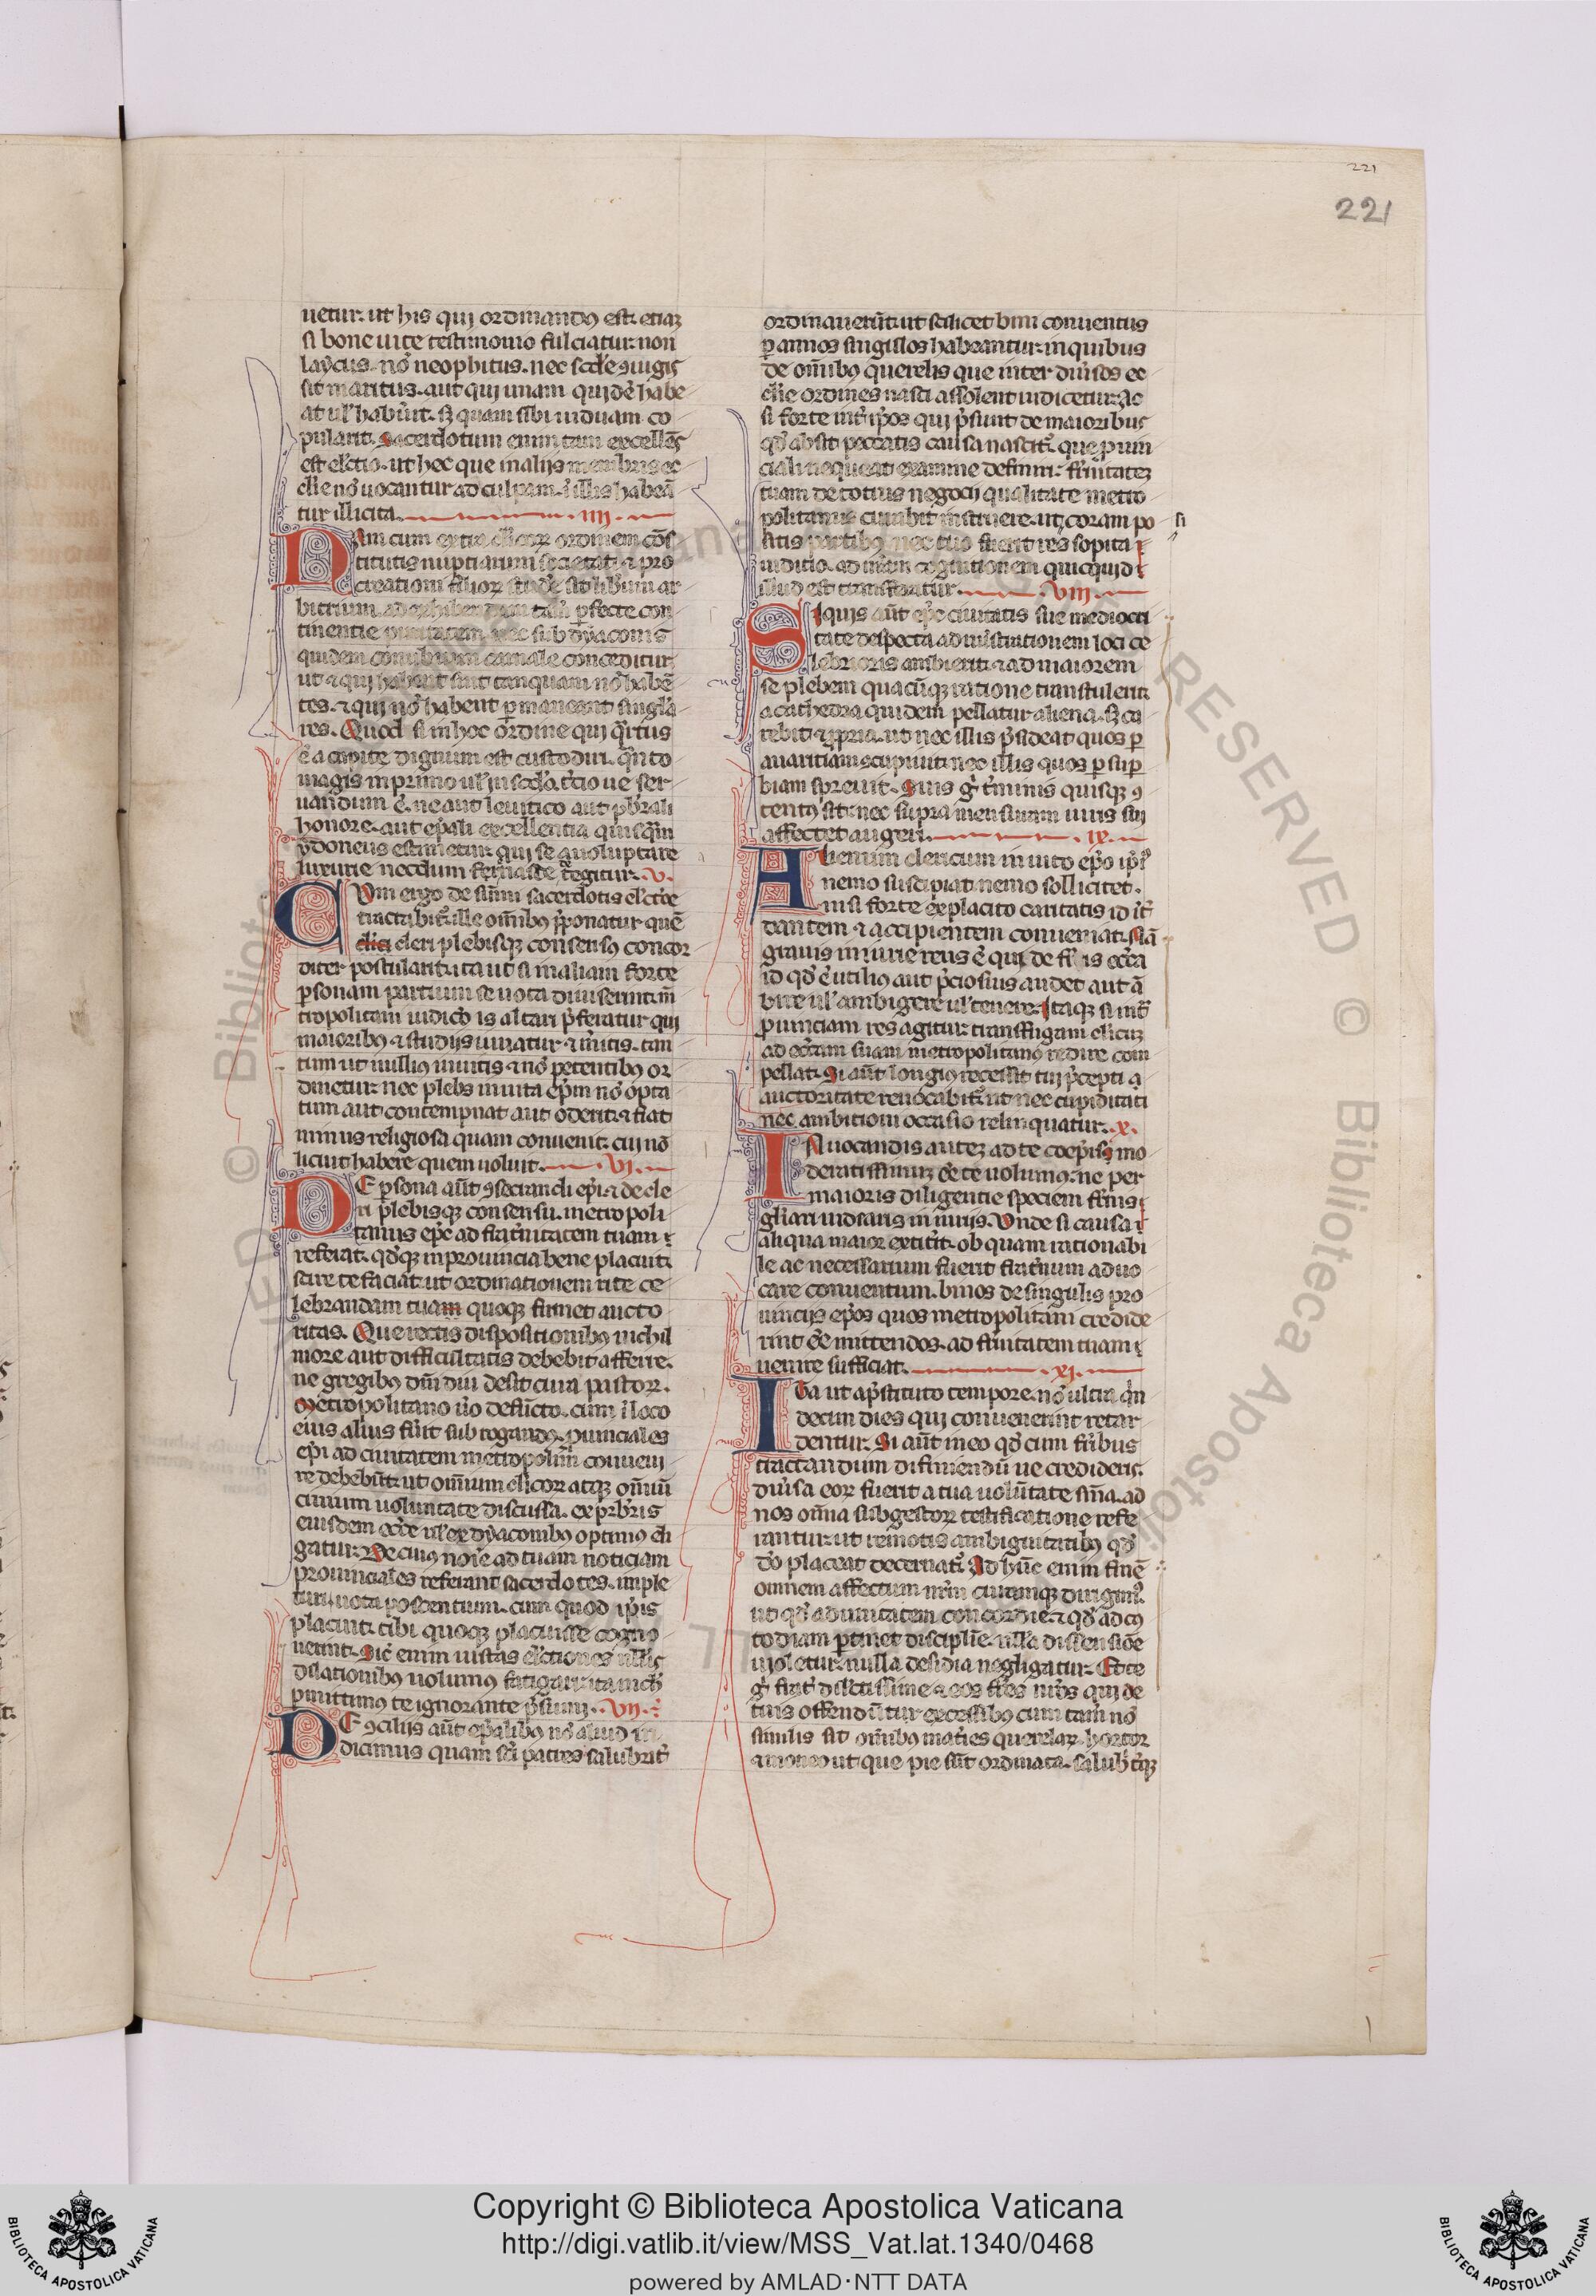 221
221
uetur. ut his qui ordinandꝰ est. etiaꝫ
si bone uite testimonio fulciatur. non
laycus. nō neophitus. nec scd̄e ꝯiugis
sit maritus. aut qui unam quidē habe
at ul' habuit. sꝫ quam sibi uiduam co
pularit. Sacerdotum enim tam excellēs
est electio. ut hec que in alijs membris ec
clīe nō uocantur ad culpam. ī illis habeā
tur illicita. .iiii.
Nam cum extra clīcoꝝ ordinem cōs
titutis nuptiarum societati ⁊ pro
creationi filioꝝ studē sit lib̄um ar
bitrium. ad exhibendam tam̄ ꝑfecte con
tinentie puritatem. nec subdyaconis
quidem conubium carnale conceditur.
ut ⁊ qui habent sint tanquam nō habē
tes. ⁊ qui nō habent ꝑmaneant singla
res. Quod si in hoc ordine qui q̄rtus
ē a capite dignum est custodiri. q̄nto
magis in primo ul' in scd̄o. t̄cio ue ser
uandum ē. ne aut leuitico aut pb̄rali
honore. aut ep̄ali excellentia quisq̄m
ydoneus estimetur. qui se a uoluptate
luxurie necdum frenasse detegitur. .v.
Cum ergo de sum̄i sacerdotis electōe
tractabit̄. ille om̄ibꝰ p̄ponatur. quē
clici cleri plebisqꝫ consensꝰ concor
diter postularit. ita ut si in aliam forte
ꝑsonam partium se uota diuiserint. m̄
tropolitani iudicio is altari p̄feratur qui
maioribꝰ ⁊ studijs iuuatur ⁊ m̄itis. tan
tum ut nullus inuitis ⁊ nō petentibꝰ or
dinetur. nec plebs inuita ep̄m nō opta
tum aut contempnat aut oderit. ⁊ fiat
minus religiosa quam conuenit. cui nō
licuit habere quem uoluit. .vi.
De ꝑsona aut̄ ꝯsecrandi ep̄i. ⁊ de cle
ri plebisqꝫ consensu. metropoli
tanus ep̄e ad frat̄nitatem tuam
referat. qd̄qꝫ in prouincia bene placuit
scire te faciat. ut ordinationem rite ce
lebrandam tuam quoqꝫ firmet aucto
ritas. Que rectis dispositionibꝰ nichil
more aut difficultatis debebit afferre.
ne gregibꝰ dn̄i diu desit cura pastoꝝ.
Metropolitano u̅o defūcto. cum ī loco
eius alius fūit subrogandꝰ. ꝓuinciales
ep̄i ad ciuitatem metropolim̄ conueni
re debebūt. ut om̄ium clīcoꝝ atqꝫ om̄iū
ciuium uoluntate discussa. ex pr̄b̄ris
eiusdem eccl̄e ul' ex dyaconibꝰ optimus eli
gatur. De cuius noīe ad tuam noticiam
prouinciales referant sacerdotes. imple
turi uota poscentium. cum quod ip̄is
placuit. tibi quoqꝫ placuisse cogno
uerint. Sic̄ enim iustas electiones nullis
dilationibꝰ uolumus fatigari. ita nich̄
ꝑmittimus te ignorante p̄sumi. .vii.
De ꝯcilijs aut̄ ep̄alibꝰ nō aliud in
dicimus quam sc̄i patres salubrit̄
ordinauerūt. ut scilicet bini conuentus
ꝑ annos singulos habeantur. in quibus
de om̄ibꝰ querelis que inter diūsos ec
clīe ordines nasci assolent iudicetur. Ac
si forte int̄ ip̄os qui p̄sunt de maioribus
qd̄ absit peccatis causa nascit̄. que ꝓuin
ciali nequeat examine definiri. fr̄nitateꝫ
tuam de totius negocij qualitate metro
politanus curabit instruere. ut coram po
si
sitis partibꝰ nec tuo fuerit res sopita
iuditio. ad nr̄am cognitionem quicquid
illud est transferatur. .viii.
Siquis aut̄ ep̄e ciuitatis sue mediocri
tate despecta administrationem loci ce
lebrioris ambierit. ⁊ ad maiorem
se plebem quacūqꝫ ratione transtulerit
a cathedra quidem pellatur aliena. sꝫ ca
rebit ⁊ ꝓpria. ut nec illis p̄sideat quos ꝑ
auaritiam ꝯcupiuit. nec illis quos ꝑ suꝑ
biam spreuit. Suis g̊ t̄minis quisqꝫ ꝯ
tentꝰ sit. nec supra mensuram iuris sui
affectet augeri. .ix.
Alienum clericum inuito ep̄o ip̄iꝰ
nemo suscipiat. nemo sollicitet.
nisi forte ex placito caritatis id īt̄
dantem ⁊ accipientem conueniat. Nā
grauis iniurie reus ē qui de fr̄is eccl̄ia
id qd̄ ē utilius aut p̄ciosius audet aut ā
bire ul' ambigere ul' tenere. Itaqꝫ si int̄
ꝓuinciam res agitur. transfugam clīcuꝫ
ad eccl̄iam suam metropolitanꝰ redire com
pellat. Si aut̄ longius recessit tui p̄cepti
auctoritate reuocabit̄. ut nec cupiditati
nec ambitioni occasio relinquatur. .x.
In uocandis auteꝫ ad te coep̄is mo
deratissimuꝫ ee te uolumus. ne per
maioris diligentie speciem fr̄nis
gl̄iari uidearis iniurijs. Unde si causa
aliqua maior extit̄it. ob quam rationabi
le ac necessarium fuerit frat̄num aduo
care conuentum. binos de singulis pro
uincijs ep̄os quos metropolitani credide
rint ee mittendos. ad fr̄nitatem tuam
uenire sufficiat. .xi.
Ita ut a p̄stituto tempore. nō ultra q̄in
decim dies qui conuenerint retar
dentur. Si aut̄ in eo qd̄ cum fr̄ibus
tractandum difiniendū ue credideris.
diūsa eoꝝ fuerit a tua uolūtate sn̄ia. ad
nos om̄ia sub gestoꝝ testificatione refe
rantur. ut remotis ambiguitatibꝰ qd̄
d̄o placeat decernat̄. Ad hūc enim finē
omnem affectum nr̄m curamqꝫ dirigimꝰ.
ut qd̄ ad unitatem concordie. ⁊ qd̄ ad cus
todiam ꝑtinet discipline. nulla dissensiōe
uioletur. nulla desidia negligatur. Et te
g̊ frat̄ dilectissime. ⁊ eos fr̄es nr̄os qui de
tuis offendūtur excessibus cum tam nō
similis sit om̄ibus mat̄ies querelaꝝ. hortor
⁊ moneo ut que pie sūt ordinata. salubrit̄qꝫ
Copyright © Biblioteca Apostolica Vaticana
http://digi.vatlib.it/view/MSS_Vat.lat.1340/0468
powered by AMLAD·NTT DATA